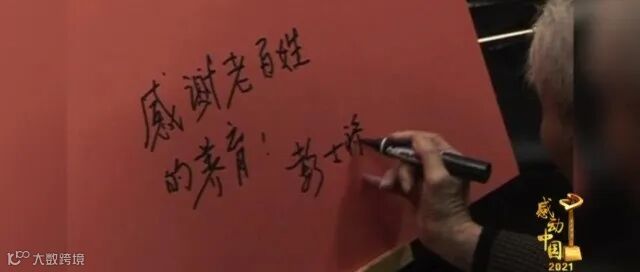 感谢老百姓
的养育！彭士禄
感动中国
2021
10100.com 大数跨境